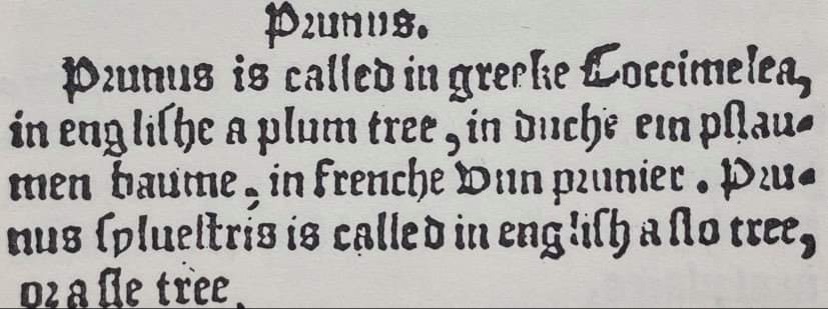 Prunus.
Prunus is called in greeke Coccimelea,
in englishe a plum tree, in duche ein pflau-
men baume, in frenche vun prunier. Pru-
nus sylvestris is called in english a slo tree,
or a sle tree.